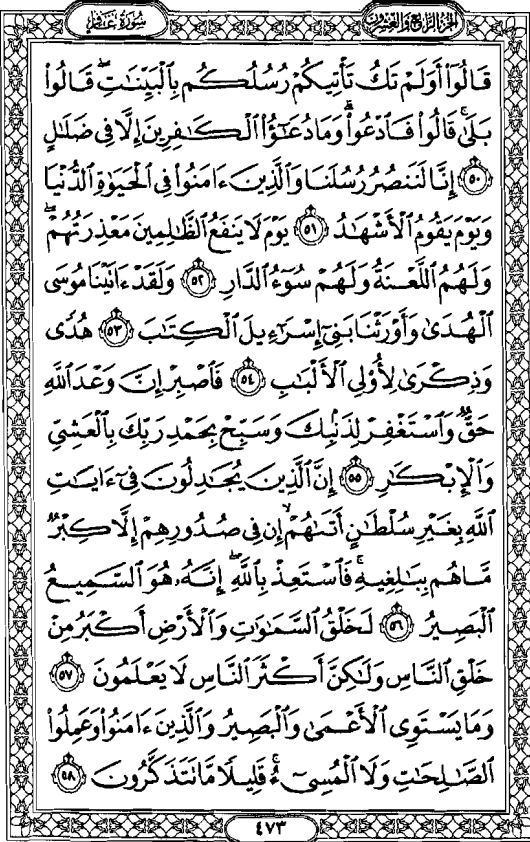 الجزء الرابع والعشرون
سورة غافر
قَالُوٓا۟ أَوَلَمْ تَكُ تَأْتِيكُمْ رُسُلُكُم بِٱلْبَيِّنَٰتِ ۖ قَالُوا۟
بَلَىٰ ۚ قَالُوا۟ فَٱدْعُوا۟ ۗ وَمَا دُعَٰٓؤُا۟ ٱلْكَٰفِرِينَ إِلَّا فِى ضَلَٰلٍ
﴿٥٠﴾ إِنَّا لَنَنصُرُ رُسُلَنَا وَٱلَّذِينَ ءَامَنُوا۟ فِى ٱلْحَيَوٰةِ ٱلدُّنْيَا
وَيَوْمَ يَقُومُ ٱلْأَشْهَٰدُ ﴿٥١﴾ يَوْمَ لَا يَنفَعُ ٱلظَّٰلِمِينَ مَعْذِرَتُهُمْ ۖ
وَلَهُمُ ٱللَّعْنَةُ وَلَهُمْ سُوٓءُ ٱلدَّارِ ﴿٥٢﴾ وَلَقَدْ ءَاتَيْنَا مُوسَى
ٱلْهُدَىٰ وَأَوْرَثْنَا بَنِىٓ إِسْرَٰٓءِيلَ ٱلْكِتَٰبَ ﴿٥٣﴾ هُدًى
وَذِكْرَىٰ لِأُو۟لِى ٱلْأَلْبَٰبِ ﴿٥٤﴾ فَٱصْبِرْ إِنَّ وَعْدَ ٱللَّهِ
حَقٌّ وَٱسْتَغْفِرْ لِذَنۢبِكَ وَسَبِّحْ بِحَمْدِ رَبِّكَ بِٱلْعَشِىِّ
وَٱلْإِبْكَٰرِ ﴿٥٥﴾ إِنَّ ٱلَّذِينَ يُجَٰدِلُونَ فِىٓ ءَايَٰتِ
ٱللَّهِ بِغَيْرِ سُلْطَٰنٍ أَتَىٰهُمْ ۙ إِن فِى صُدُورِهِمْ إِلَّا كِبْرٌ
مَّا هُم بِبَٰلِغِيهِ ۚ فَٱسْتَعِذْ بِٱللَّهِ ۖ إِنَّهُۥ هُوَ ٱلسَّمِيعُ
ٱلْبَصِيرُ ﴿٥٦﴾ لَخَلْقُ ٱلسَّمَٰوَٰتِ وَٱلْأَرْضِ أَكْبَرُ مِنْ
خَلْقِ ٱلنَّاسِ وَلَٰكِنَّ أَكْثَرَ ٱلنَّاسِ لَا يَعْلَمُونَ ﴿٥٧﴾
وَمَا يَسْتَوِى ٱلْأَعْمَىٰ وَٱلْبَصِيرُ وَٱلَّذِينَ ءَامَنُوا۟ وَعَمِلُوا۟
ٱلصَّٰلِحَٰتِ وَلَا ٱلْمُسِىٓءُ ۚ قَلِيلًا مَّا تَتَذَكَّرُونَ ﴿٥٨﴾
٤٧٣